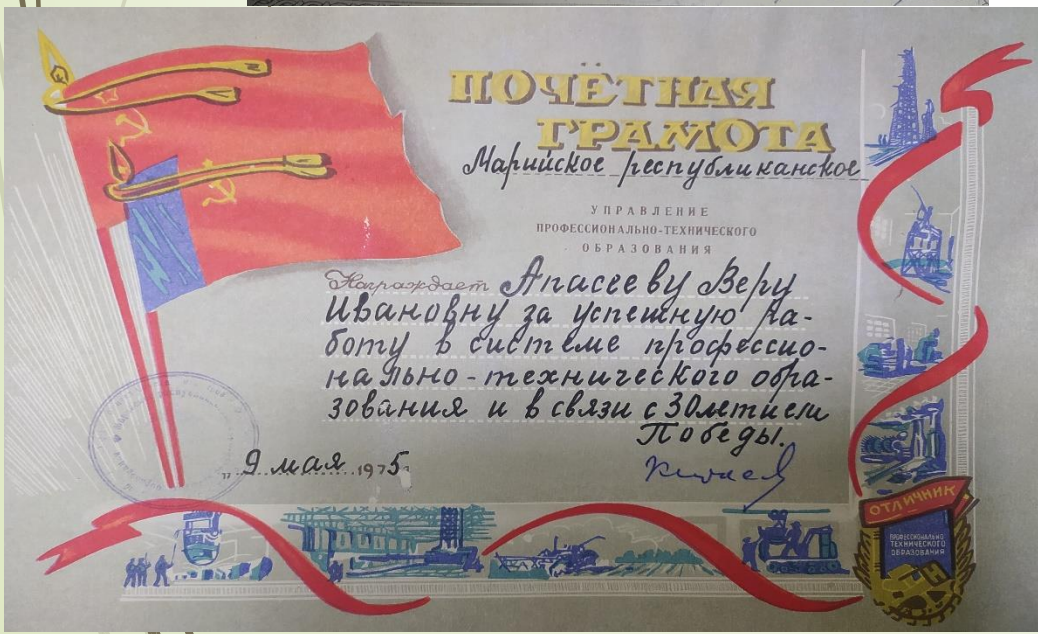 ПОЧЁТНАЯ
ГРАМОТА
Марийское республиканское
УПРАВЛЕНИЕ
ПРОФЕССИОНАЛЬНО-ТЕХНИЧЕСКОГО
ОБРАЗОВАНИЯ
Награждает Апасееву Веру
Ивановну за успешную ра-
боту в системе профессио-
нально-технического обра-
зования и в связи с 30летием
Победы.
"9 мая 1975
ОТЛИЧНИК
ПРОФЕССИОНАЛЬНО
ТЕХНИЧЕСКОГО
ОБРАЗОВАНИЯ